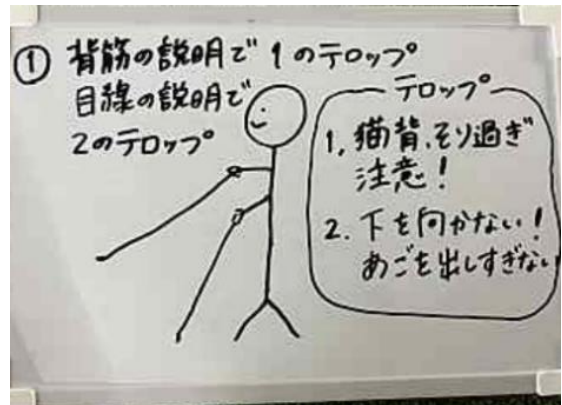 ① 背筋の説明で 1のテロップ
目線の説明で
2のテロップ
テロップ
1, 猫背、そり過ぎ
注意！
2. 下を向かない！
あごを出しすぎない